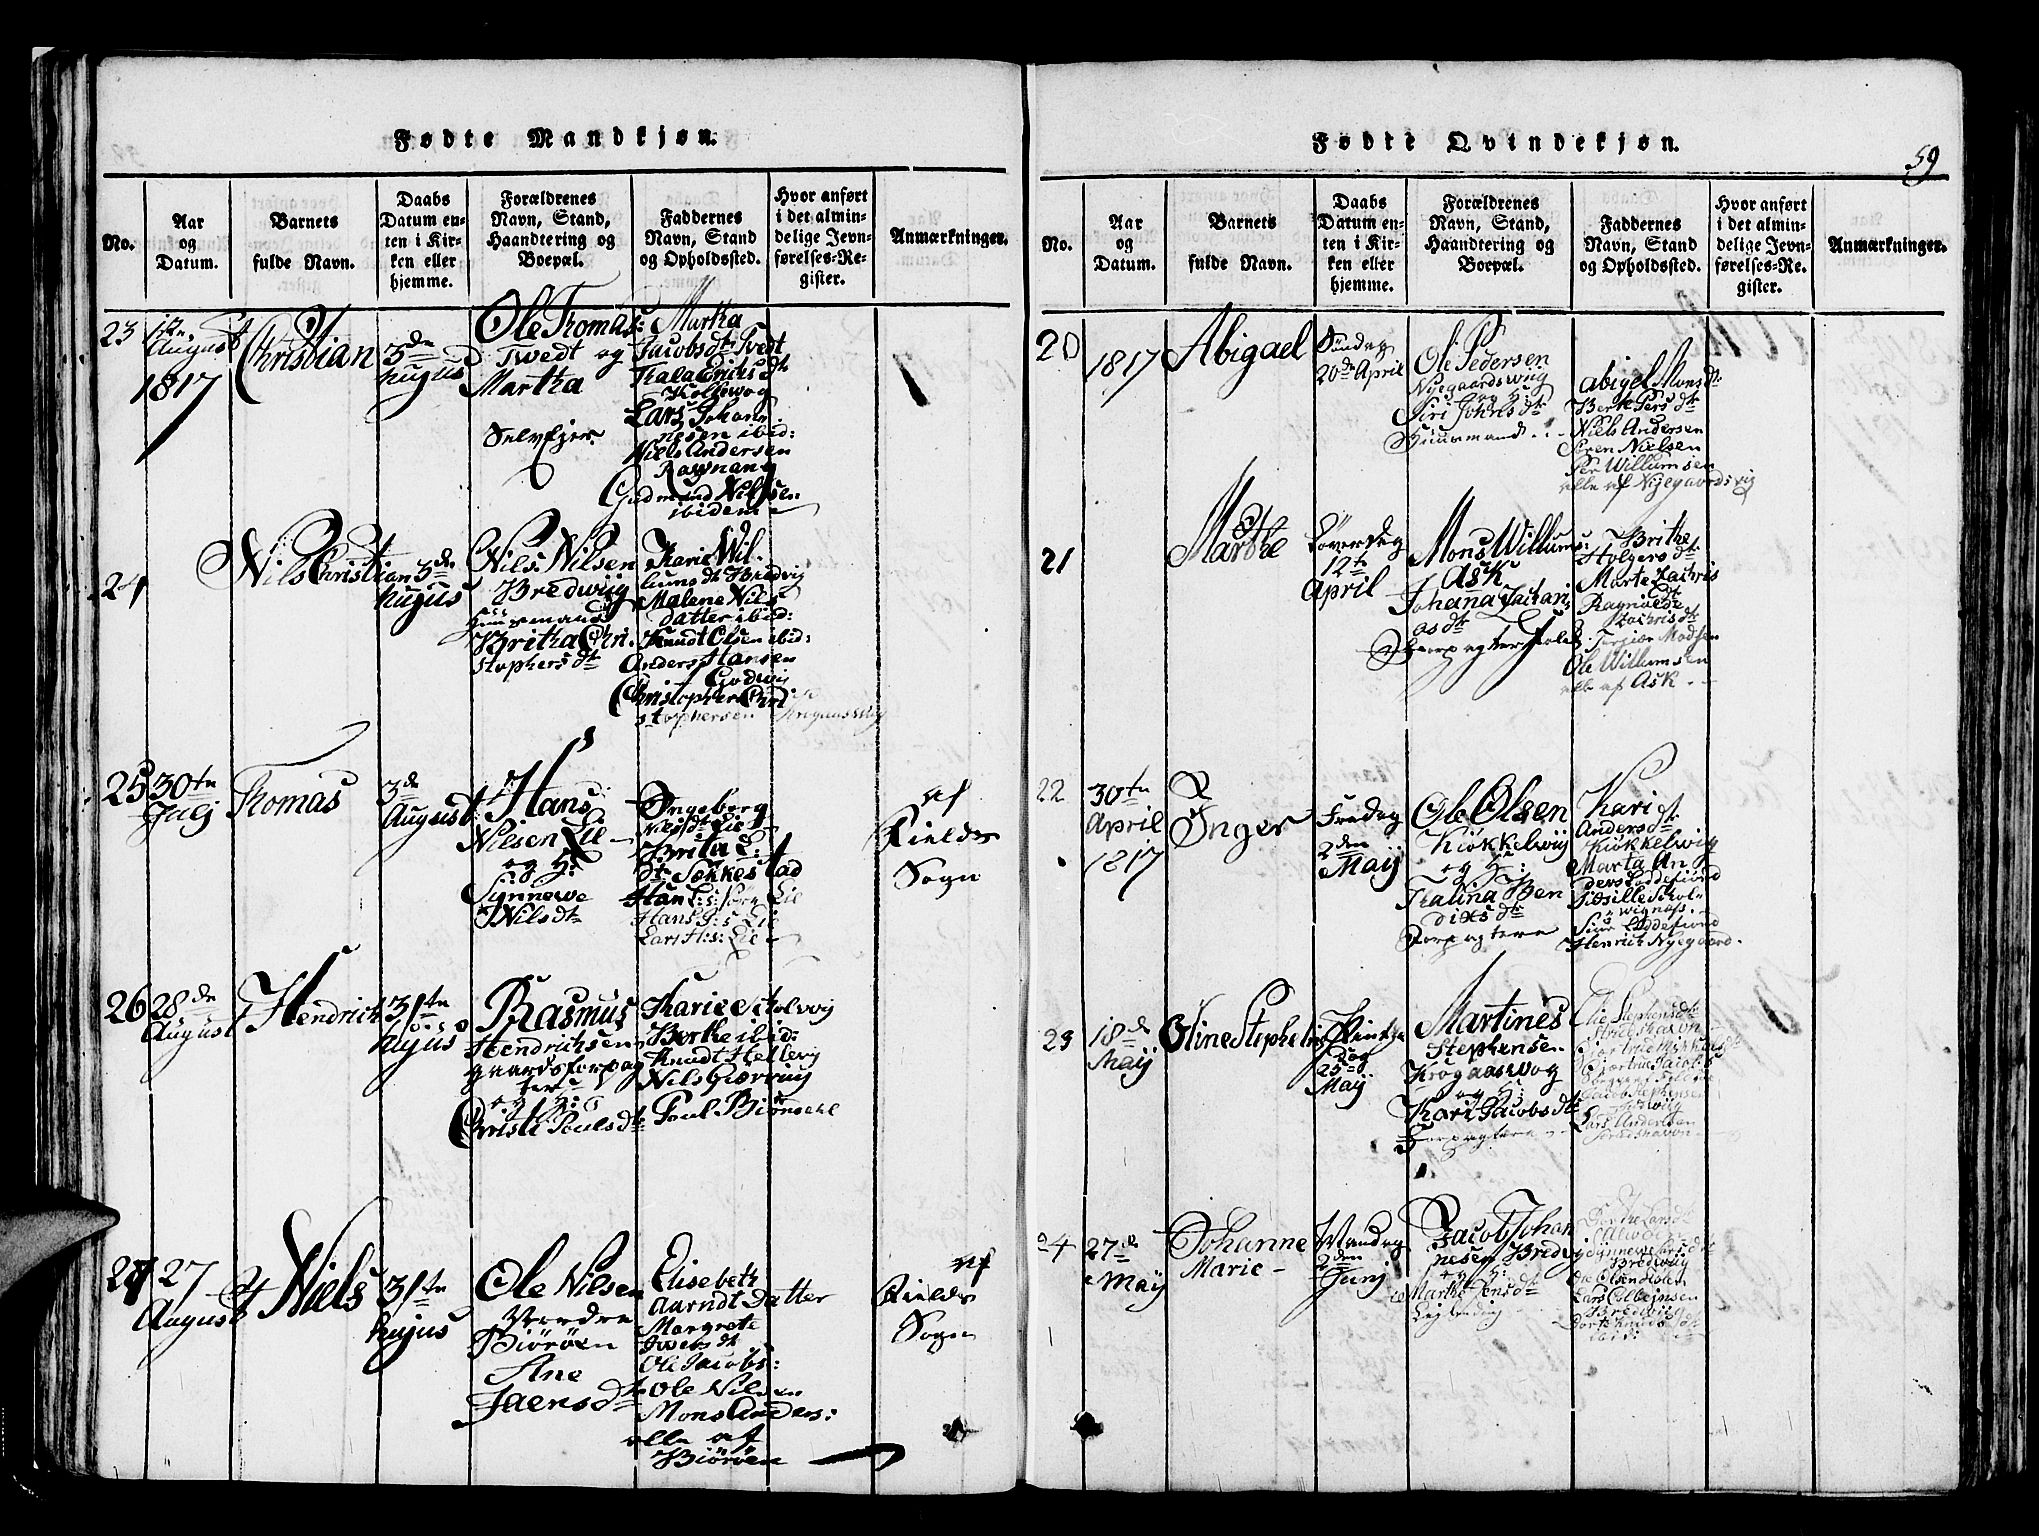 Fødte Mandkjøn.
No.
Aar
og
Datum.
Barnets
fulde Navn.
Daabs
Datum en-
ten i Kir-
ken eller
hjemme.
Forældrenes
Navn, Stand,
Haandtering og
Boepæl.
Faddernes
Navn, Stand
og Opholdssted.
Hvor anført
i det almin-
delige Jevn-
førelses-Re-
gister.
Anmærkninger.
23
12te
August
1817
Christian
3de
hujus
Ole Thomas:
Twedt og
Martha
Selvejer
Martha
Jacobsdt Tvedt
Thala Erichsdt
Kollevog
Lars Johan-
nesen ibid:
Niels Andersen
Ragnang
Gudmund Nilsen
ibidem
24
Nils Christian
3de
hujus
Nils Nilsen
Bredwiig
Huusmand
Britha Chri-
stophersdt
Karie Wil-
lumsdt Bredvig
Malene Nils
datter ibid:
Knudt Olsen ibid:
Anders Hansen
Godwig
Christopher Chri
stophersen
25
30te
Julj
Thomas
3de
August
Hans
Nilsen Lie
og H:
Synnewe
Nilsdt
Ingeborg
Nilsdt Lie
Brita L:
dt Søkkestad
Hans L:s: Lie
Hans J:s Lie
Lars H:s: Lie
af
Fields
Sogn
26
28de
August
Hendrich
31te
hujus
Rasmus
Hendrichsen
gaardsforpag
ter
og H:
Christi Poulsdt
Karie Holvig
Berthe ibid:
Knudt Hellevig
Nils Giervig
Poul Biørndahl
27
27
August
Niels
31te
hujus
Ole Nilsen
Nordre
Biørøen
Ane
Jaensdt
Elisebeth
Aarndt Datter
Margrete
Iwersdt
Ole Jacobs:
Ole Nilsen
Mons Anders:
alle af
Biørøen
af
Fields
Sogn
Fødte Qvindekjøn.
59
No.
Aar
og
Datum.
Barnets
fulde Navn.
Daabs
Datum en-
ten i Kir-
ken eller
hjemme.
Forældrenes
Navn, Stand,
Haandtering og
Boepæl.
Faddernes
Navn, Stand
og Opholdssted.
Hvor anført
i det almin-
delige Jevn-
førelses-Re-
gister.
Anmærkninger.
20
1817
Abigael
Søndag
20de April
Ole Pedersen
Nyegaardswiig
og H:
Siri Johnsdt
Huusmand
abigel Monsdt:
Berte Persdt
Niels Andersen
Søren Nielsen
Per Willumsen
alle af Nyegaardsvig
21
Marthe
Løverdag
12te
April
Mons Willums:
Ask
Johanna Zachari
asdt
Forpagterfolk
Brithe
Holgersdt
Marte Zachris
dt
Ragnilde
Zachrisdt
Torgier Madsen
Ole Willumsen
alle af Ask
22
30te
April
1817
Inger
Fredag
2den
Maij
Ole Olsen
Kiøkkelwiij
og H:
Thalina Ben
dixsdt
Forpagtere
Kari
Andersdt
Kiøkkelwig
Marta An
ders Loddefiord
Sidsille Skol
wignes
Siur Loddefiord
Henrich Nyegaard
23
18de
Maij
Oline Stephelin
Pintze
dag
25de
Maij
Martines
Stephense
Krogaasvog
og H:
Kari Jacobsdt
Forpagtere
Elie Stephensdt
24
27de
Maij
Johanne
Marie
Mandag
2den
Junij
Jacob Johan
nesen Bredvig
og H:
Marthe Jensdt
Leylending
Berthe Larsdt
Synnewe Larsdt
Bredwiig
Ole Olsen Holen
Lars Colbejnsen
Bredwiig
ibid: